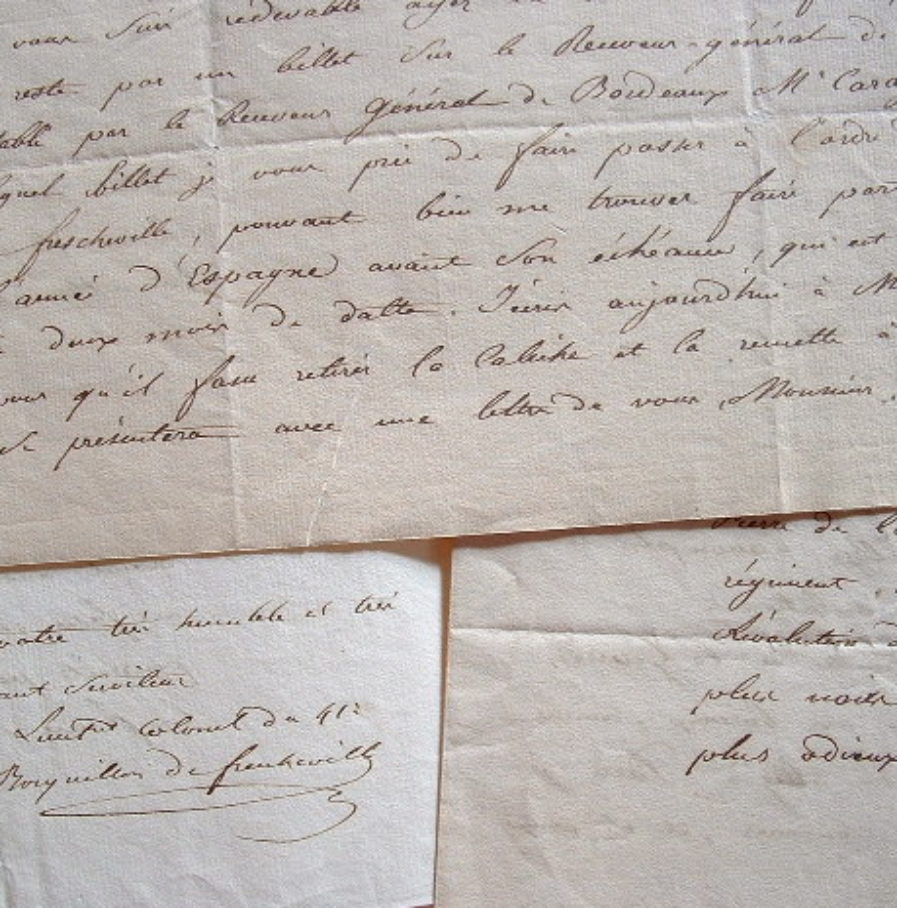 vous suis redevable
reste par un billet sur le Receveur-général de
par le Receveur Général de Bordeaux Mr
billet je vous prie de faire passer à l'ordre
frescheville, pouvant bien me trouver faire
d'Espagne avant son échéance, qui est
deux mois de datte. J'écris aujourd'hui à M
qu'il fasse retirer la Caleche et la remette à
présentera avec une lettre de vous, Monsieur.
votre très humble et très
Serviteur
Lieutnt colonel du 41e
de frescheville
Pierre de
régiment,
Révolution
plus noire
plus odieux